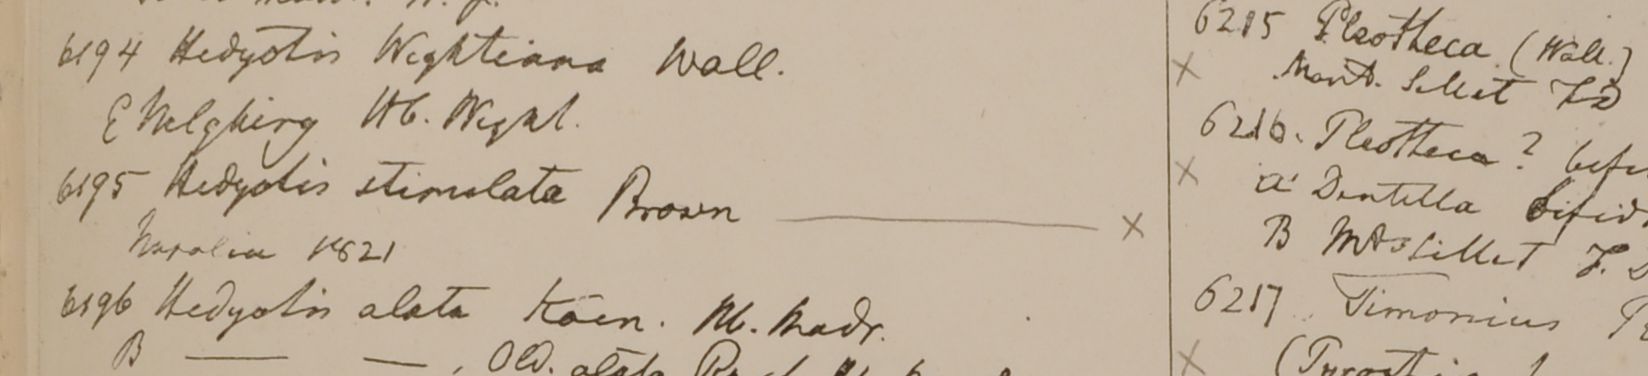 6194 Hedyotis Wightiana Wall.
E Nelghirry Hb. Wight.
6195 Hedyotis stimulata Brown ——— ×
Noralia 1821
6196 Hedyotis alata Köen. Hb. Madr.
B —— ——, Old. alata
6215 Pleotheca (Wall.)
× Mont. Sillet F.D
6216. Pleotheca?
× a Dentella bifid
B Mts Sillet F. D
6217 Timonius
×